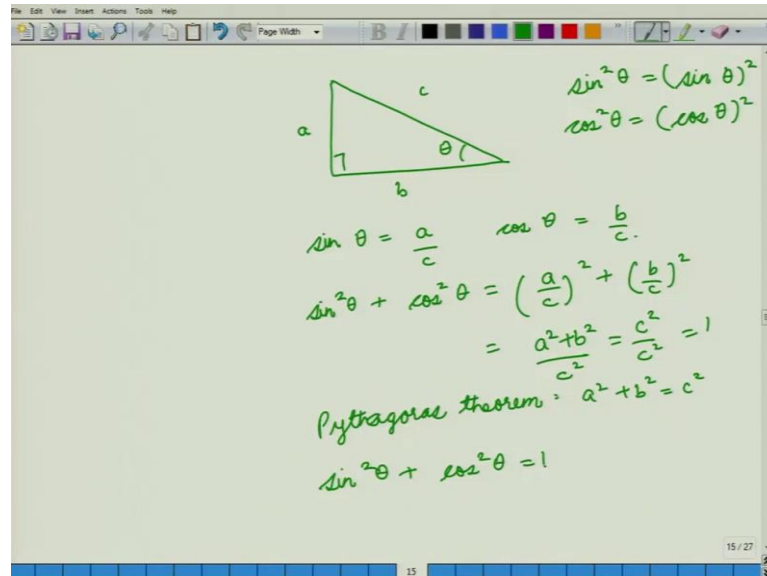 File Edit View Insert Actions Tools Help
Page Width B I
c
a
θ
b
sin²θ = (sin θ)²
cos²θ = (cos θ)²
sin θ = a/c cos θ = b/c.
sin²θ + cos²θ = (a/c)² + (b/c)²
= a²+b²/c² = c²/c² = 1
Pythagoras theorem: a² + b² = c²
sin²θ + cos²θ = 1
15 / 27
15